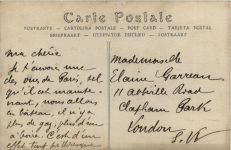 Carte Postale
POSTKARTE — CARTOLINA POSTALE — POST CARD — TARJETA POSTAL
BRIEFKAART
ma chérie
Je t'envoie une
des vues de Paris, tel
qu'il est mainte
nant, nous allons
en bateau, il n'y a
plus de gaz, plus d'eau
à boire. C'est d'un
effet
Mademoiselle
Elaine Garreau
11 Abbeville Road
Clapham Park
London
S.W